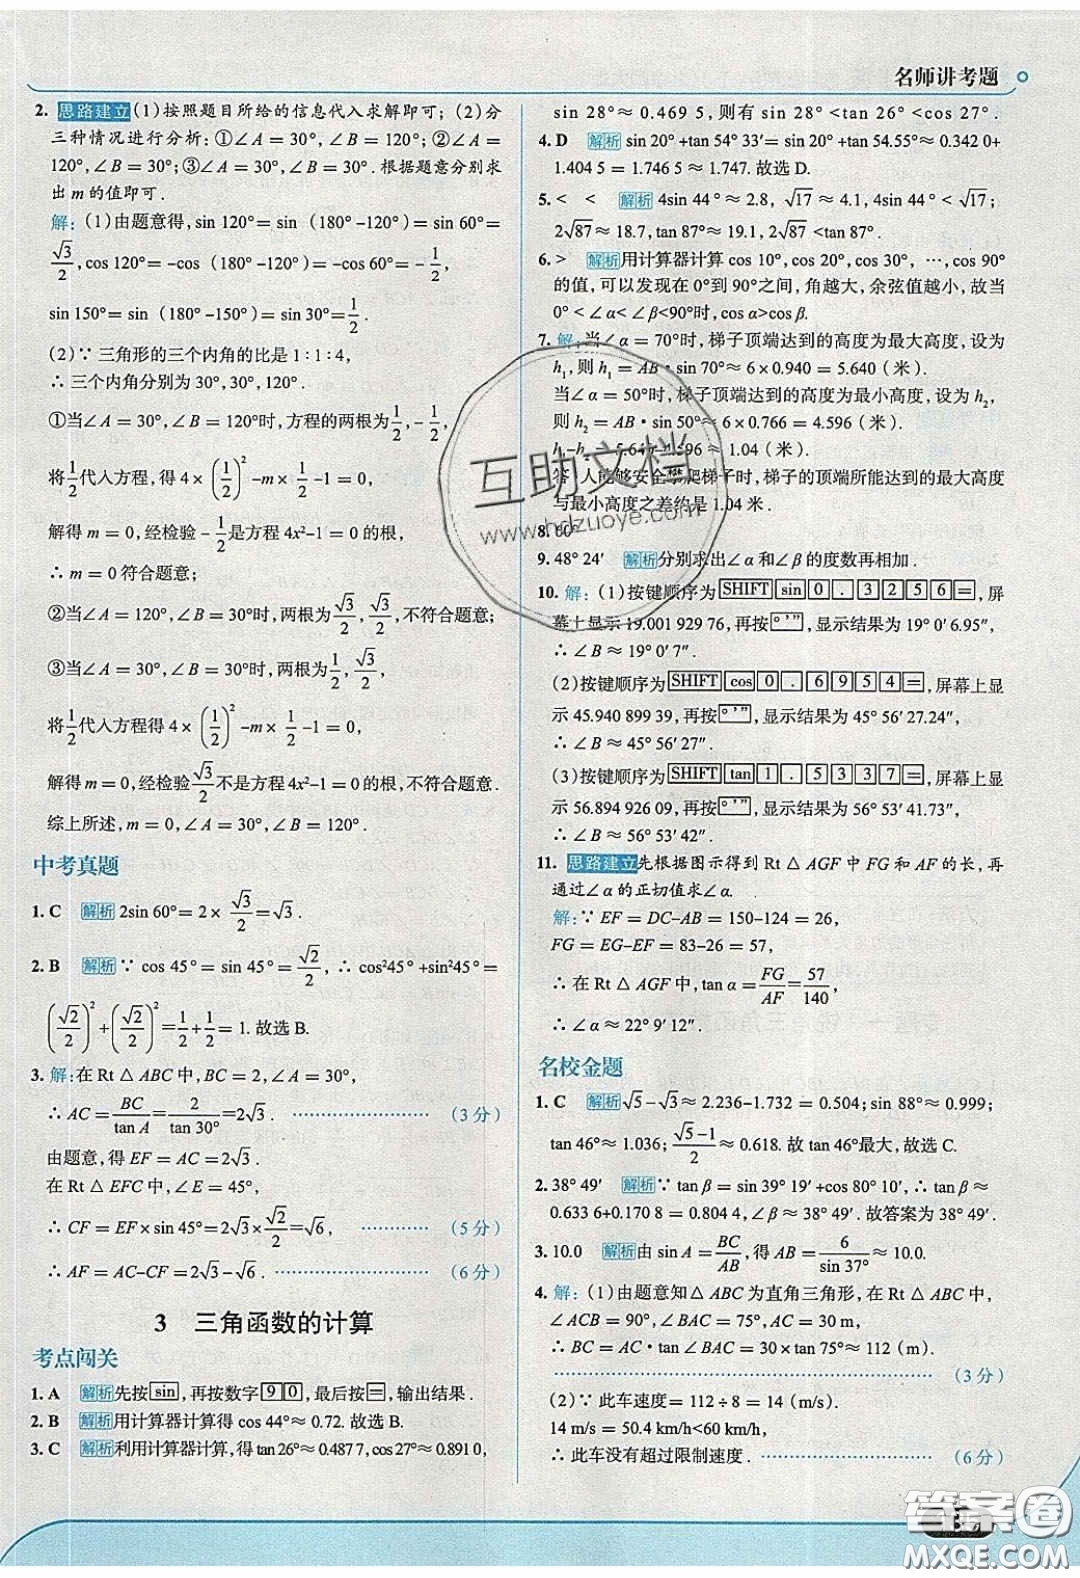 名师讲考题
2. 思路建立(1)按照题目所给的信息代入求解即可;(2)分
三种情况进行分析:①∠A=30°,∠B=120°;②∠A=
120°,∠B=30°;③∠A=30°,∠B=30°.根据题意分别求
出m的值即可.
解:(1)由题意得,sin 120°=sin (180°-120°)=sin 60°=
√3/2,cos 120°=-cos (180°-120°)=-cos 60°=-1/2,
sin 150°=sin (180°-150°)=sin 30°=1/2.
(2)∵三角形的三个内角的比是1:1:4,
∴三个内角分别为30°,30°,120°.
①当∠A=30°,∠B=120°时,方程的两根为1/2,-1/2,
将1/2代入方程,得4×(1/2)²-m×1/2-1=0,
解得m=0,经检验-1/2是方程4x²-1=0的根,
∴m=0符合题意;
②当∠A=120°,∠B=30°时,两根为√3/2,√3/2,不符合题意;
③当∠A=30°,∠B=30°时,两根为1/2,√3/2,
将1/2代入方程得4×(1/2)²-m×1/2-1=0,
解得m=0,经检验√3/2不是方程4x²-1=0的根,不符合题意.
综上所述,m=0,∠A=30°,∠B=120°.
中考真题
1. C 解析 2sin 60°=2×√3/2=√3.
2. B 解析 ∵cos 45°=sin 45°=√2/2,∴cos²45°+sin²45°=
(√2/2)²+(√2/2)²=1/2+1/2=1.故选B.
3. 解:在Rt△ABC中,BC=2,∠A=30°,
∴AC=BC/tan A=2/tan 30°=2√3. (3分)
由题意,得EF=AC=2√3.
在Rt△EFC中,∠E=45°,
∴CF=EF×sin 45°=2√3×√2/2=√6, (5分)
∴AF=AC-CF=2√3-√6. (6分)
3 三角函数的计算
考点闯关
1. A 解析 先按sin,再按数字90,最后按=,输出结果.
2. B 解析 用计算器计算得cos 44°≈0.72.故选B.
3. C 解析 利用计算器计算,得tan 26°≈0.487 7,cos 27°≈0.891 0,
sin 28°≈0.469 5,则有sin 28°<tan 26°<cos 27°.
4. D 解析 sin 20°+tan 54°33′=sin 20°+tan 54.55°≈0.342 0+
1.404 5=1.746 5≈1.747.故选D.
5. < < 解析 4sin 44°≈2.8,√17≈4.1,4sin 44°<√17;
2√87≈18.7,tan 87°≈19.1,2√87<tan 87°.
6. > 解析 用计算器计算cos 10°,cos 20°,cos 30°,…,cos 90°
的值,可以发现在0°到90°之间,角越大,余弦值越小,故当
0°<∠α<∠β<90°时,cos α>cos β.
7. 解:当∠α=70°时,梯子顶端达到的高度为最大高度,设为
h₁,则h₁=AB·sin 70°≈6×0.940=5.640(米).
当∠α=50°时,梯子顶端达到的高度为最小高度,设为h₂,
则h₂=AB·sin 50°≈6×0.766=4.596(米).
h₁-h₂=5.640-4.596≈1.04(米).
答:人能够安全攀爬梯子时,梯子的顶端所能达到的最大高度
与最小高度之差约是1.04米.
8. 60°
9. 48°24′ 解析 分别求出∠α和∠β的度数再相加.
10. 解:(1)按键顺序为SHIFT sin 0 . 3 2 5 6 =,屏
幕上显示19.001 929 76,再按°′″,显示结果为19°0′6.95″,
∴∠B≈19°0′7″.
(2)按键顺序为SHIFT cos 0 . 6 9 5 4 =,屏幕上显
示45.940 899 39,再按°′″,显示结果为45°56′27.24″,
∴∠B≈45°56′27″.
(3)按键顺序为SHIFT tan 1 . 5 3 3 7 =,屏幕上显示
56.894 926 09,再按°′″,显示结果为56°53′41.73″,
∴∠B≈56°53′42″.
11. 思路建立先根据图示得到Rt△AGF中FG和AF的长,再
通过∠α的正切值求∠α.
解:∵EF=DC-AB=150-124=26,
FG=EG-EF=83-26=57,
∴在Rt△AGF中,tan α=FG/AF=57/140,
∴∠α≈22°9′12″.
名校金题
1. C 解析 √5-√3≈2.236-1.732=0.504;sin 88°≈0.999;
tan 46°≈1.036;(√5-1)/2≈0.618.故tan 46°最大,故选C.
2. 38°49′ 解析 ∵tan β=sin 39°19′+cos 80°10′,∴tan β≈
0.633 6+0.170 8=0.804 4,∠β≈38°49′.故答案为38°49′.
3. 10.0 解析 由sin A=BC/AB,得AB=6/sin 37°≈10.0.
4. 解:(1)由题意知△ABC为直角三角形,在Rt△ABC中,
∠ACB=90°,∠BAC=75°,AC=30 m,
∴BC=AC·tan∠BAC=30×tan 75°≈112(m).
(3分)
(2)∵此车速度=112÷8=14(m/s).
14 m/s=50.4 km/h<60 km/h,
∴此车没有超过限制速度. (6分)
互助文档
www.hdzuoye.com
答案圈
MXQE.COM